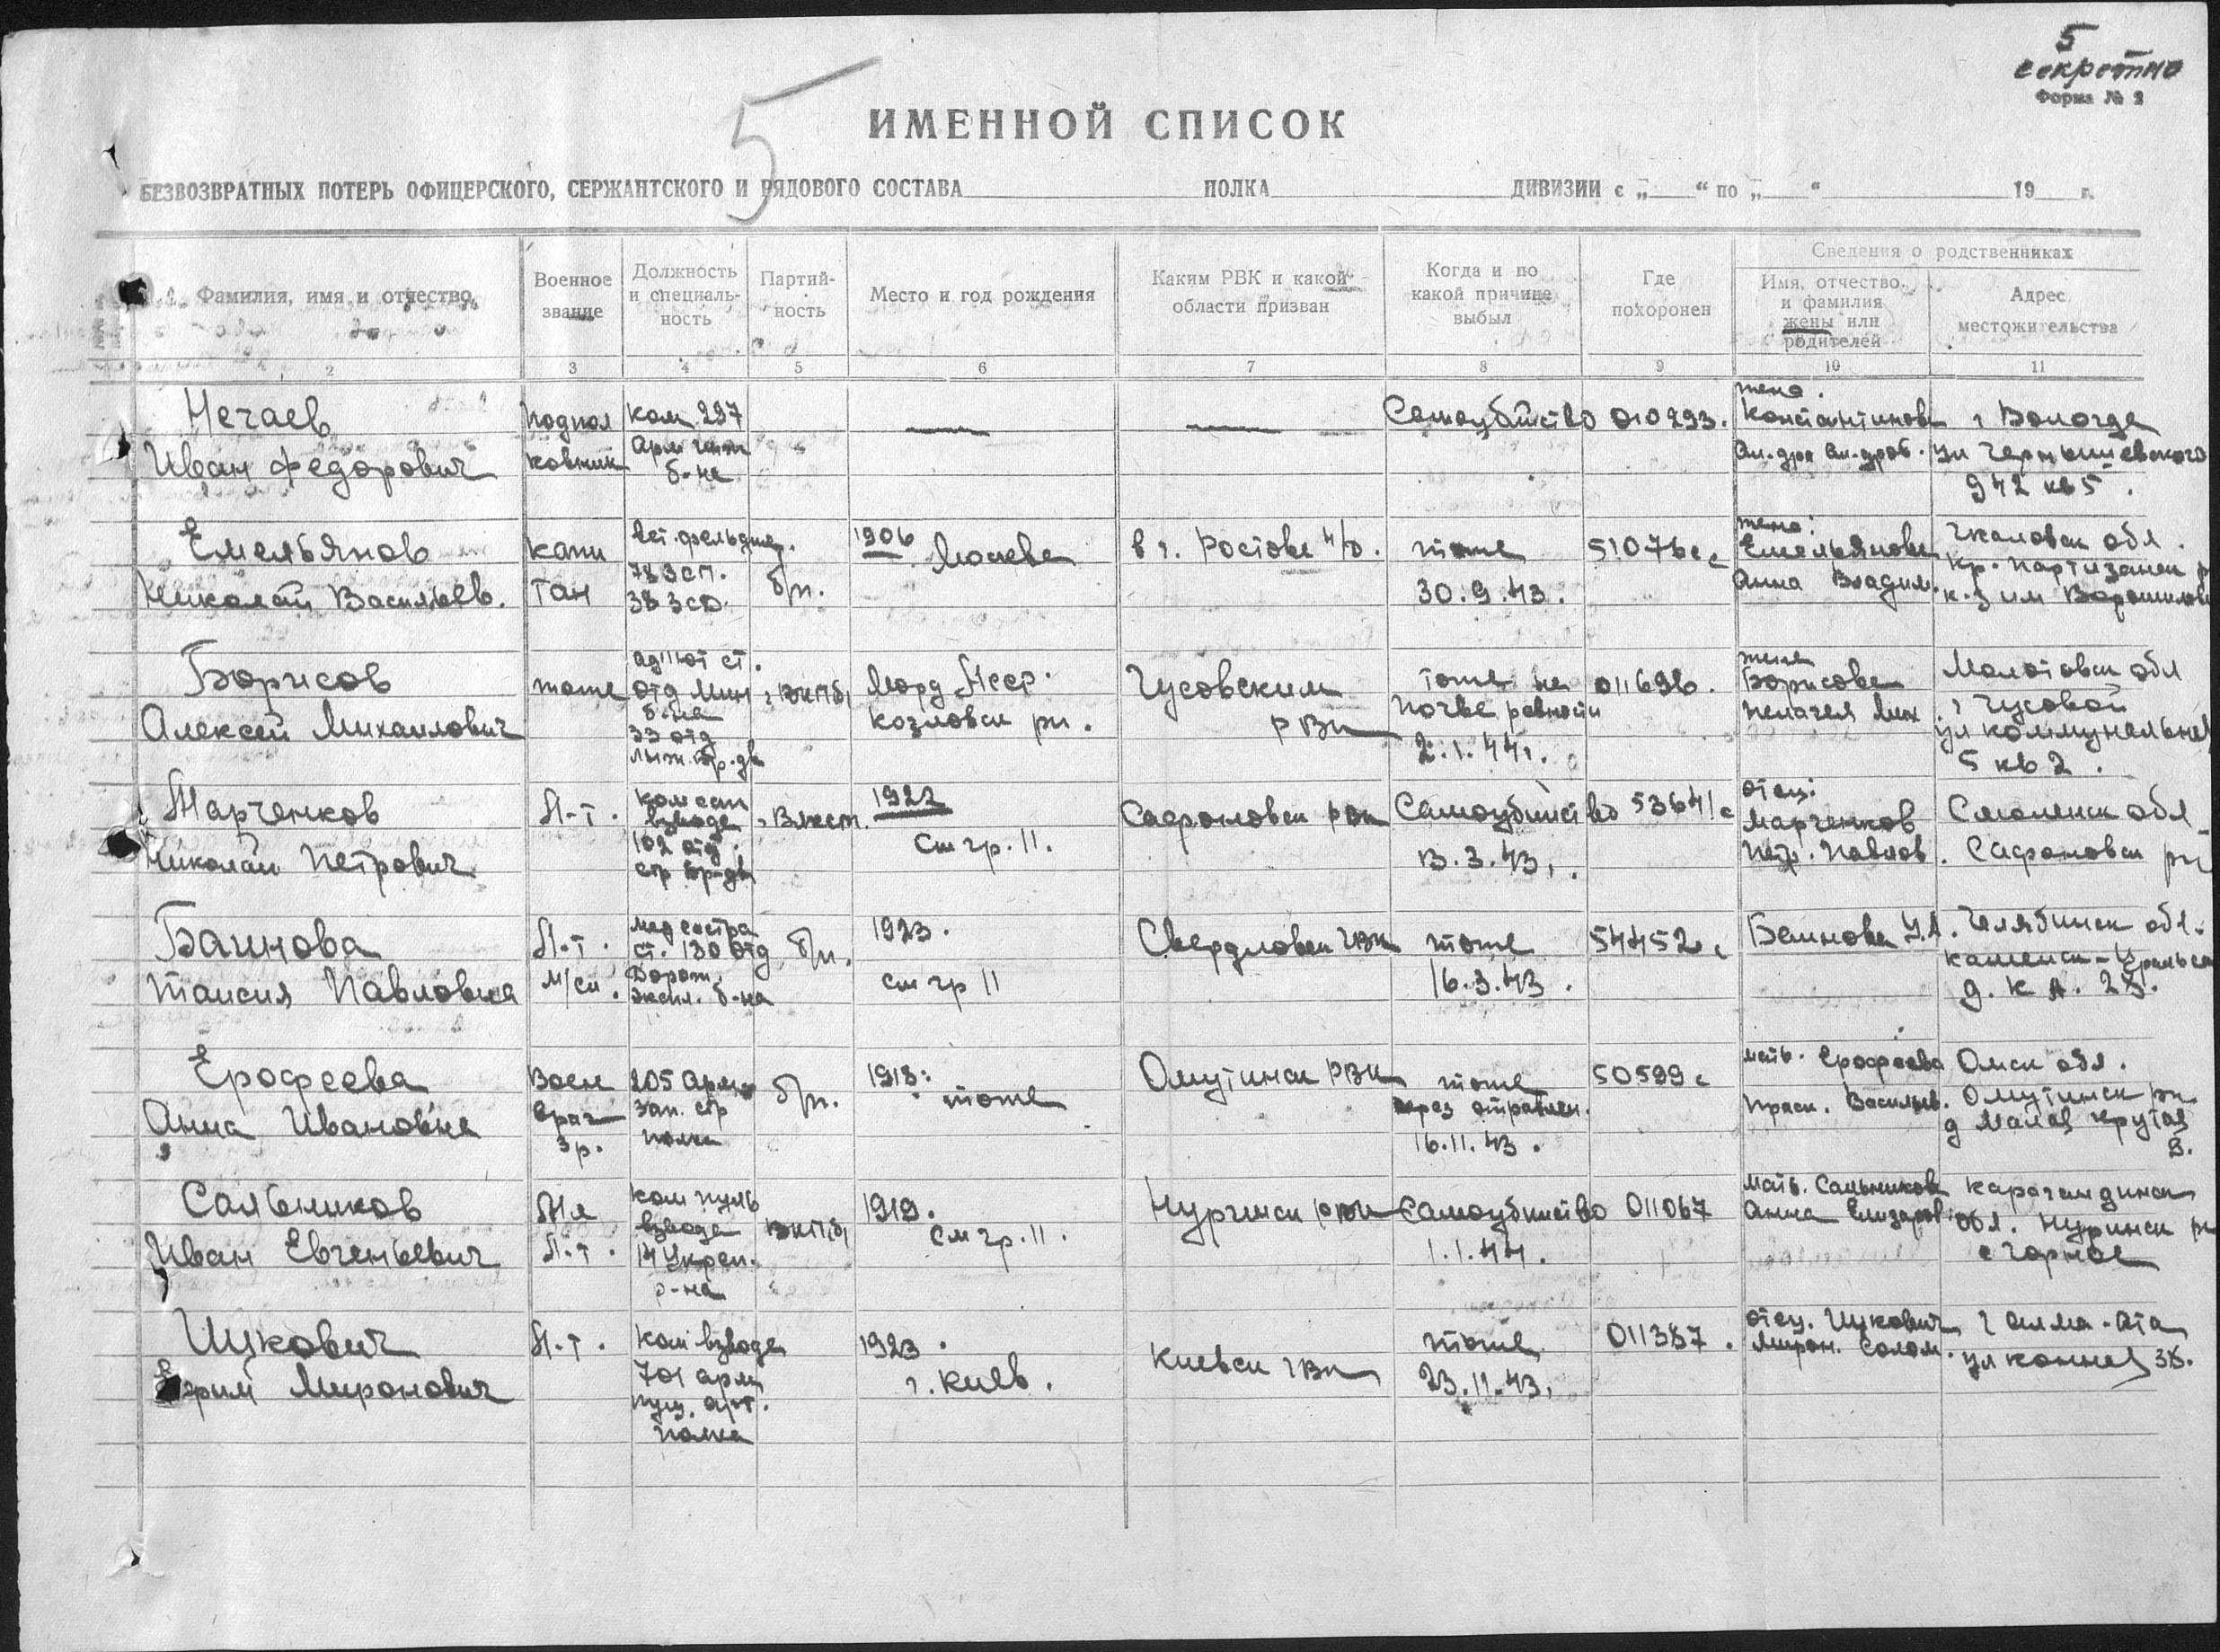 5
секретно
Форма № 2
5
ИМЕННОЙ СПИСОК
БЕЗВОЗВРАТНЫХ ПОТЕРЬ ОФИЦЕРСКОГО, СЕРЖАНТСКОГО И РЯДОВОГО СОСТАВА ПОЛКА ДИВИЗИИ с „ “ по „ “ 19 г.
Фамилия, имя и отчество
Военное звание
Должность и специаль-ность
Партий-ность
Место и год рождения
Каким РВК и какой области призван
Когда и по какой причине выбыл
Где похоронен
Сведения о родственниках
Имя, отчество и фамилия жены или родителей
Адрес местожительства
2 3 4 5 6 7 8 9 10 11
Нечаев
Иван Федорович
подпол
ковник
ком 297
Арм инж
б-на
—
—
Самоубийство
010293.
жена.
Константинов
Ал-дра Ал-дров.
г Вологда
ул Чернышевского
942 кв 5.
Емельянов
Николай Васильев.
капи
тан
вет. фельдшер.
783 сп.
383 сд.
б/п.
1906
Москва
в г. Ростове н/д.
тоже
30.9.43.
51076с
жена:
Емельянова
Анна Владим.
Чкаловск обл.
кр. партизанск р
к-з им Ворошилов
Борисов
Алексей Михайлович
тоже
ад'ют ст.
отд мин
б-на
33 отд
лыж. бр-ды
ВКП/б/
Морд Асср.
Козловск рн.
Чусовским
РВК
тоже на
почве ревности
2.1.44г.
011696.
жена
Борисова
Пелагея Мих
Молотовск обл
г Чусовой
ул коммунальная
5 кв 2.
Марченков
Николай Петрович
Л-т.
ком сап
взвода
102 отд.
стр бр-ды
Влксм.
1922
См гр. 11.
Сафоновск рвк
Самоубийство
13.3.43г.
53641с
отец:
Марченков
Петр. Павлов.
Смоленск обл
Сафоновск рн
Баинова
Таисия Павловна
Л-т.
м/сл.
мед сестра
ст. 130 отд
Дорож.
экспл. б-на
б/п.
1923.
см гр 11
Свердловск гвк
тоже
16.3.43.
54452с
Баинова У.А.
Челябинск обл.
Каменск-Уральск
д. К А. 28.
Ерофеева
Анна Ивановна
Воен
врач
3 р.
205 Арм
зап. стр
полка
б/п.
1918:
тоже
Омутинск РВК
тоже
через отравлен.
16.11.43.
50599с
мать. Ерофеева
Праск. Васильев.
Омск обл.
Омутинск рн
д Малая Крутая
Сальников
Иван Евгеньевич
Мл
Л-т.
ком пуль
взвода
14 Укреп.
р-на
ВКП/б/
1919.
См гр. 11.
Нуринск рвк
Самоубийство
1.1.44.
011067
мать. Сальникова
Анна Елизаров
Карагандинск
обл. Нуринск р
с Горное
Цукович
Ефрим Миронович
Л-т.
ком взвода
701 арм
пуш. арт.
полка
1923.
г. Киев.
Киевск гвк
тоже
23.11.43г.
011387.
отец. Цукович
Мирон. Солом.
г Алма-Ата
38.